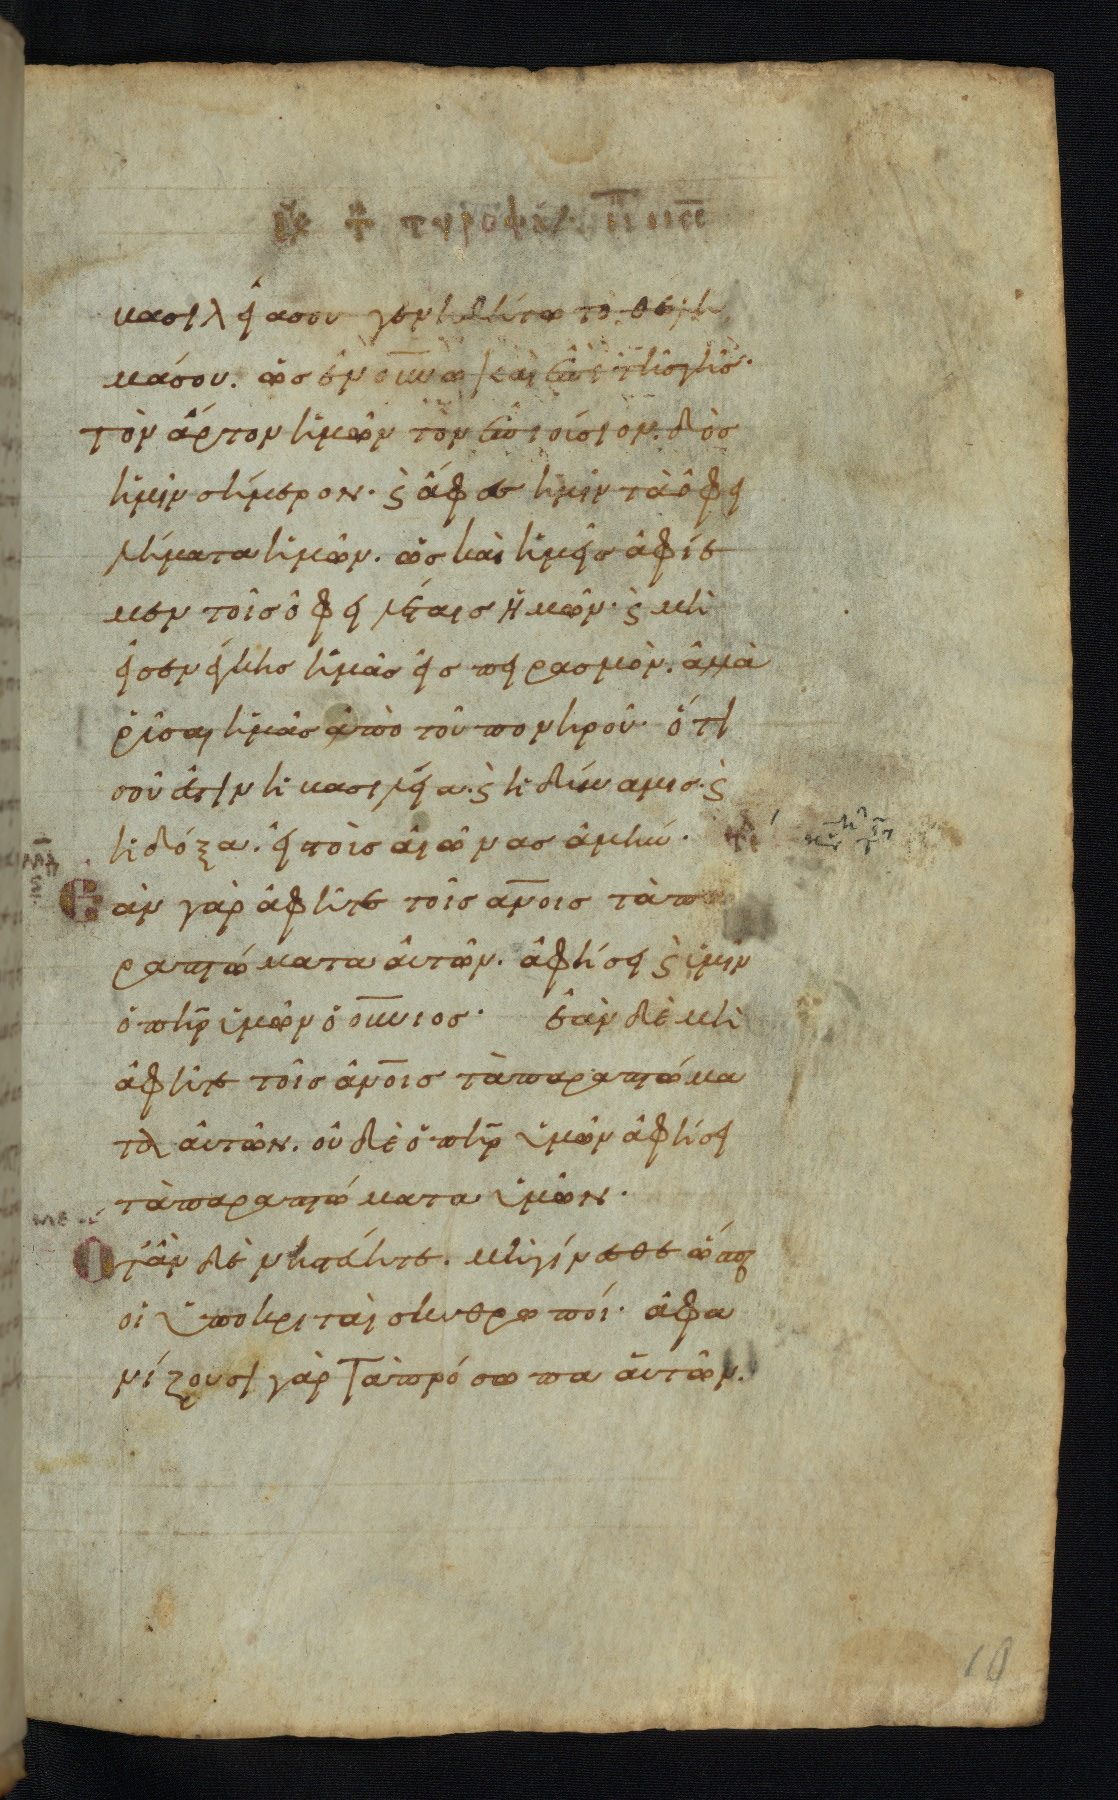 βασιλεία σου γενηθήτω τὸ θέλη
μά σου. ὡς ἐν οὐνῶ καὶ ἐπὶ τῆς γῆς.
τὸν ἄρτον ἡμῶν τὸν ἐπιούσιον. δὸς
ἡμῖν σήμερον. ϛ ἄφες ἡμῖν τὰ ὀφει
λήματα ἡμῶν. ὡς καὶ ἡμεῖς ἀφίε
μεν τοῖς ὀφειλέταις ἡμῶν. ϛ μὴ
εἰσενείκης ἡμᾶς εἰς πειρασμὸν. ἀλλὰ
ῥῦσαι ἡμᾶς ἀπὸ τοῦ πονηροῦ. ὅτι
σοῦ ἐστιν ἡ βασιλεία. ϛ ἡ δύναμις. ϛ
ἡ δόξα. εἰς τοὺς αἰῶνας ἀμήν.
Ἐὰν γὰρ ἀφῆτε τοῖς ἀνοις τὰ πα
ραπτώματα αὐτῶν. ἀφήσει ϛ ὑμῖν
ὁ πηρ ὑμῶν ὁ οὐνιος. ἐὰν δὲ μὴ
ἀφῆτε τοῖς ἀνοις τὰ παραπτώμα
τα αὐτῶν. οὐδὲ ὁ πηρ ὑμῶν ἀφήσει
τὰ παραπτώματα ὑμῶν.
Ὅταν δὲ νηστεύητε. μὴ γίνεσθε ὥσπερ
οἱ ὑποκριταὶ σκυθρωποί. ἀφα
νίζουσι γὰρ τὰ πρόσωπα αὐτῶν.
10